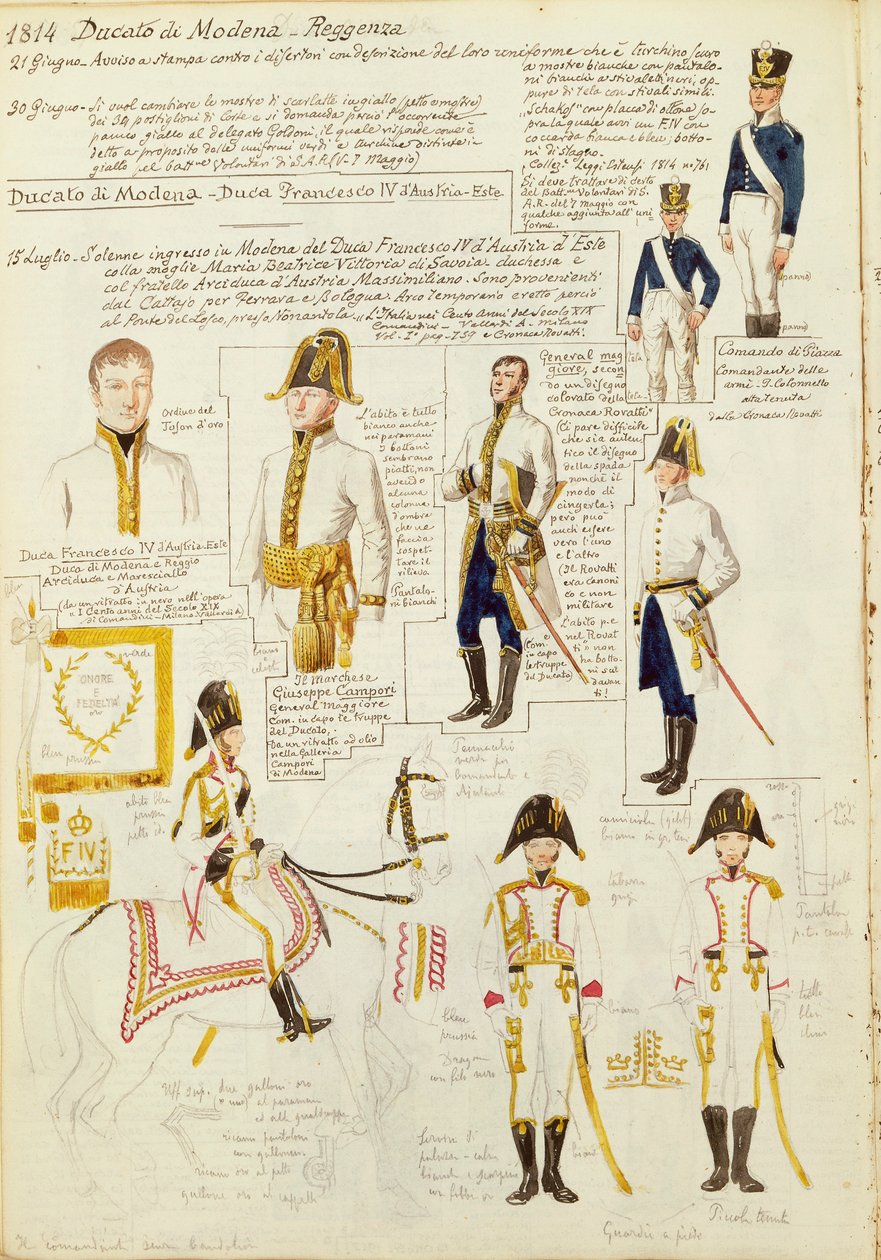 1814 Ducato di Modena - Reggenza
21 Giugno - Avviso a stampa contro i disertori con descrizione del loro uniforme che è turchino scuro
a mostre bianche con pantalo-
ni bianchi a stivaletti neri, op-
pure di tela con stivali simili.
"Schakos" con placa di ottone so-
pra la quale avvi un F.IV con
coccarda bianca e bleu; botto-
ni di stagno.
Collez.e Leggi Estensi 1814 n° 761
Si deve trattare di certo
del Batt.ne Volontari di S.
A.R. del 7 maggio con
qualche aggiunta all'uni
forme.
30 Giugno - Si vuol cambiare le mostre di scarlatte in giallo (petto e mostre)
dei 24 postiglioni di Corte e si domanda perciò l'occorrente
panno giallo al delegato Goldoni, il quale risponde come è
detto a proposito delle uniformi verdi e turchine distinte in
giallo pel batt.ne Volontari di S.A.R. (V. 7 Maggio)
Ducato di Modena - Duca Francesco IV d'Austria-Este
15 Luglio - Solenne ingresso in Modena del Duca Francesco IV d'Austria d'Este
colla moglie Maria Beatrice Vittoria di Savoia duchessa e
col fratello Arciduca d'Austria Massimiliano. Sono provenienti
dal Cattajo per Ferrara e Bologna. Arco temporario eretto perciò
al Ponte del Losco, presso Nonantola. "L'Italia nei Cento Anni del Secolo XIX
Comandini - Vallardi A. Milano
Vol. I° pag. 759 e Cronaca Rovatti.
panno
panno
tela
tela
Comando di Piazza
Comandante delle
armi - T. Colonnello
alta tenuta
dalla Cronaca Rovatti
Ordine del
Toson d'oro
Duca Francesco IV d'Austria-Este
Duca di Modena e Reggio
Arciduca e Maresciallo
d'Austria
(da un ritratto in nero nell'opera
"I Cento anni del Secolo XIX
di Comandini - Milano Vallardi A.)
L'abito è tutto
bianco anche
nei paramani
I bottoni
sembrano
piatti, non
avendo
alcuna
colonna
d'ombre
che ne
faccia
sospet-
tare il
rilievo.
Pantalo-
ni bianchi
Il Marchese
Giuseppe Campori
General Maggiore
Com. in capo le truppe
del Ducato.
Da un ritratto ad olio
nella Galleria
Campori
di Modena
General mag
giore, secon
do un disegno
colorato della
Cronaca Rovatti"
(Ci pare difficile
che sia auten-
tico il disegno
della spada
nonchè il
modo di
cingerla;
però può
anch'essere
vero l'uno
e l'altro
(Il Rovatti
era canoni
co e non
militare
L'abito p.e
nel "Rovat
ti" non
ha botto-
ni sul
davan-
ti!
(Com.e
in capo
le truppe
del Ducato)
bleu
verde
ONORE
E
FEDELTÀ
oro
bleu
prussia
F IV
abito bleu
prussia
petto id.
bianco
celest
Pennacchi
verdi per
Comandante e
Aiutante
bianco
rosso
bleu
prussia
Dragona
con filo nero
bianco
Uff. sup. due galloni oro
ai paramani
ed alla gualdrappa
ricami pantaloni
con gallone
ricami oro al petto
gallone oro al cappello
Guardie a piedi
Piccola tenuta
Il comandante senza bandoliera